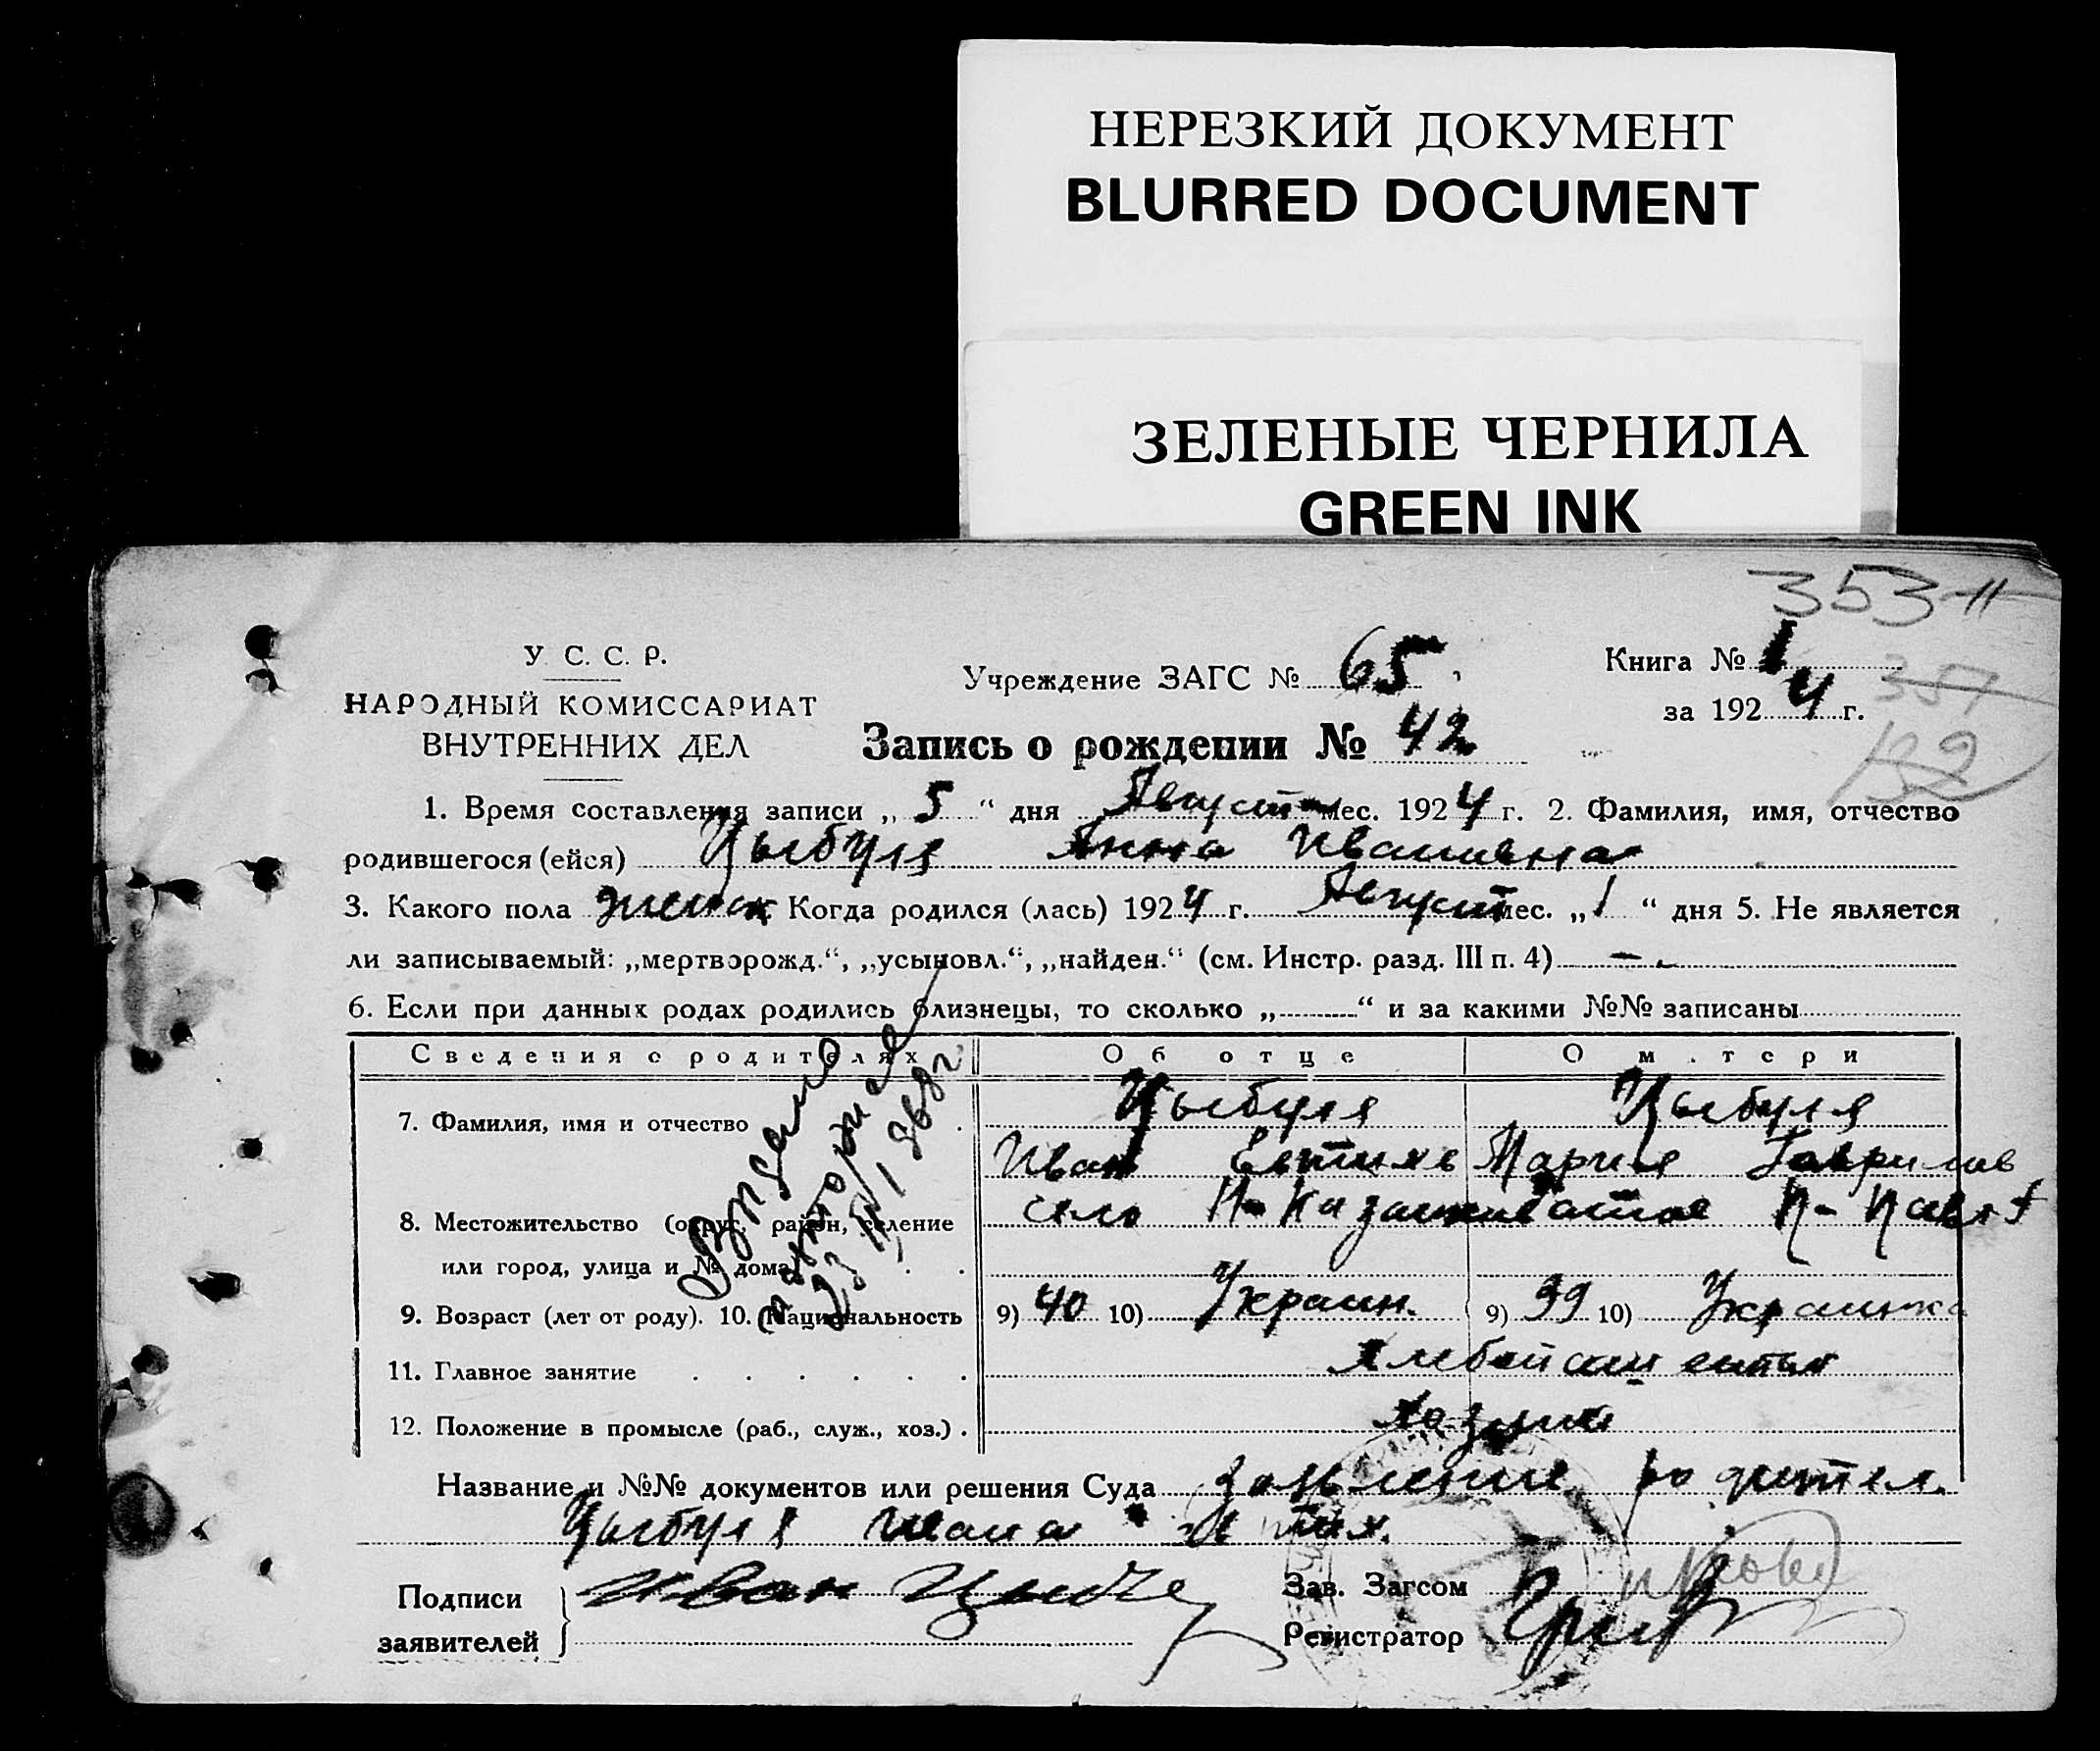 НЕРЕЗКИЙ ДОКУМЕНТ
BLURRED DOCUMENT
ЗЕЛЕНЫЕ ЧЕРНИЛА
GREEN INK
353
У. С. С. Р.
НАРОДНЫЙ КОМИССАРИАТ
ВНУТРЕННИХ ДЕЛ
Учреждение ЗАГС № 65
Книга № 1
за 1924 г.
357
132
Запись о рождении № 42
1. Время составления записи „ 5 “ дня Август мес. 1924 г. 2. Фамилия, имя, отчество
родившегося (ейся) Цыбуля Анна Ивановна
3. Какого пола женск Когда родился (лась) 1924 г. Август мес. „ 1 “ дня 5. Не является
ли записываемый: „мертворожд.“, „усыновл.“, „найден.“ (см. Инстр. разд. III п. 4) —
6. Если при данных родах родились близнецы, то сколько „ “ и за какими №№ записаны
Сведения о родителях Об отце О матери
7. Фамилия, имя и отчество Цыбуля Цыбуля
Иван Евтихв Мария Гаврилов
8. Местожительство (округ, район, селение село
или город, улица и № дома
9. Возраст (лет от роду). 10. Национальность 9) 40 10) Украин. 9) 39 10) Украинка
11. Главное занятие
12. Положение в промысле (раб., служ., хоз.)
Название и №№ документов или решения Суда Заявление родител.
Цыбуля Ивана
Подписи
заявителей
Иван Цыбуля
Зав. Загсом
Регистратор